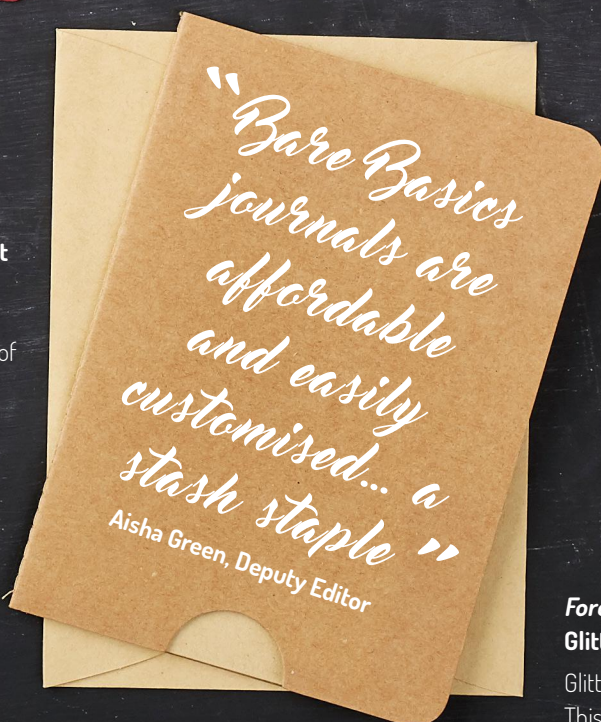 “Bare Basics
journals are
affordable
and easily
customised... a
stash staple ”
Aisha Green, Deputy Editor
of
Glitt
This